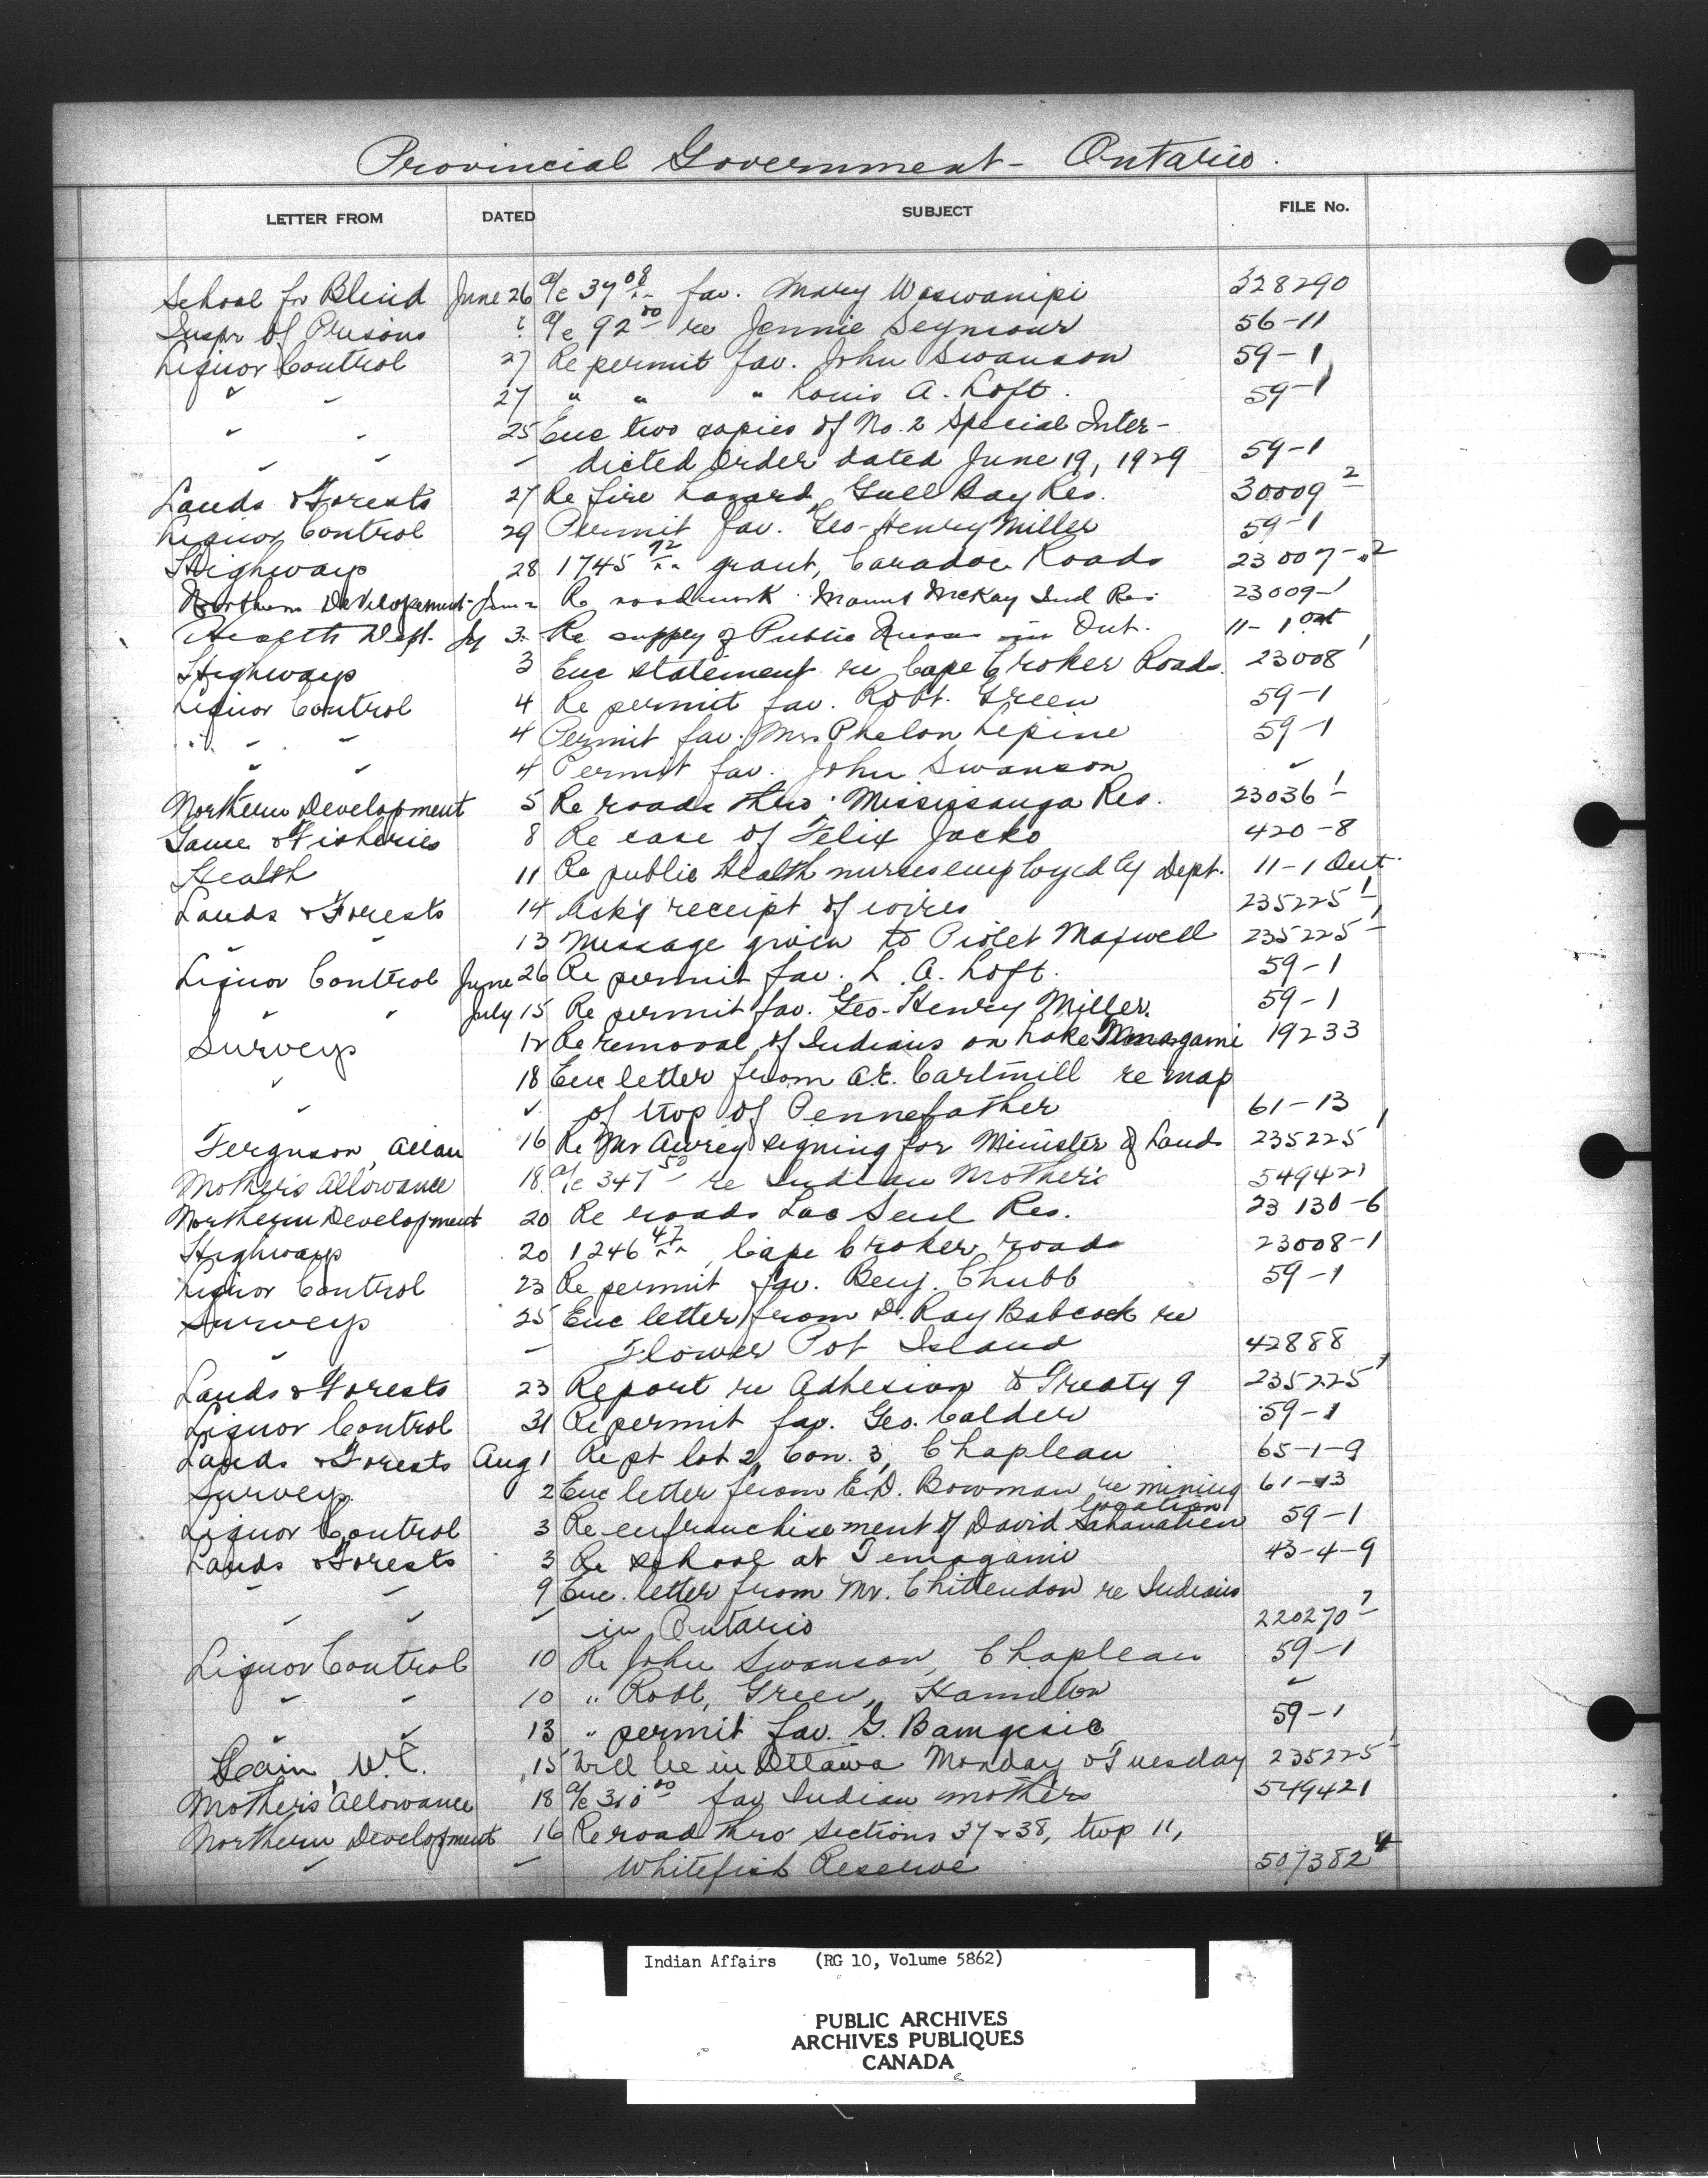 Provincial Government - Ontario.
LETTER FROM DATED SUBJECT FILE No.
School for Blind June 26 a/c 37.08 fav. Mary Waswanipi 328290
Inspr of Prisons " a/c 92.00 re Jennie Seymour 56-11
Liquor Control 27 Re permit fav. John Swanson 59-1
" " 27 " " " Louis A. Loft. 59-1
" " 25 Enc two copies of No. 2 Special Inter-
" " " dicted Order dated June 19, 1929 59-1
Lands & Forests 27 Re fire hazard, Gull Bay Res. 30009-2
Liquor Control 29 Permit fav. Geo-Henry Miller 59-1
Highways 28 1745.72 grant, Caradoc Roads 23007-2
Northern Development Re roadwork Mount McKay Ind Res. 23009-1
Health Dept. Jy 3 Re supply of Public Nurses in Ont. 11-1 Ont
Highways 3 Enc statement re Cape Croker Roads. 23008-1
Liquor Control 4 Re permit fav. Robt. Green 59-1
" " 4 Permit fav. Mrs Phelon Lepine 59-1
" " 4 Permit fav. John Swanson "
Northern Development 5 Re roads thro' Mississauga Res. 23036-1
Game & Fisheries 8 Re case of Felix Jacko 420-8
Health 11 Re public health nurses employed by Dept. 11-1 Ont.
Lands & Forests 14 Ack'g receipt of wires 235225-1
" " 13 Message given to Violet Maxwell 235225-1
Liquor Control June 26 Re permit fav. L. A. Loft. 59-1
" " July 15 Re permit fav. Geo-Henry Miller. 59-1
Surveys 12 Re removal of Indians on Lake Temagami 19233
" 18 Enc letter from A.E. Cartmill re map
" " of twp of Pennefather 61-13
Ferguson, Allan 16 Re Mr Awrey signing for Minister of Lands 235225-1
Mother's Allowance 18 a/c 347.50 re Indian Mothers 549421
Northern Development 20 Re roads Lac Seul Res. 23130-6
Highways 20 1246.47, Cape Croker roads 23008-1
Liquor Control 23 Re permit fav. Benj. Chubb 59-1
Surveys 25 Enc letter from D. Ray Babcock re
" " Flower Pot Island 42888
Lands & Forests 23 Report re Adhesion to Treaty 9 235225-1
Liquor Control 31 Re permit fav. Geo. Calder 59-1
Lands & Forests Aug 1 Re pt lot 2, Con. 3, Chapleau 65-1-9
Surveys 2 Enc letter from E.D. Bowman re mining location 61-13
Liquor Control 3 Re enfranchisement of David 59-1
Lands & Forests 3 Re school at Temagami 43-4-9
" " 9 Enc. letter from Mr. Chittendon re Indians
" " " in Ontario 220270
Liquor Control 10 Re John Swanson, Chapleau 59-1
" " 10 " Robt. Green, Hamilton "
" " 13 " permit fav. G. 59-1
Cain, W.C. 15 Will be in Ottawa Monday & Tuesday 235225-1
Mother's Allowance 18 a/c 310.00 fav Indian mothers 549421
Northern Development 16 Re road thro' sections 37 & 38, twp 11,
" " Whitefish Reserve 507382-4
Indian Affairs (RG 10, Volume 5862)
PUBLIC ARCHIVES
ARCHIVES PUBLIQUES
CANADA